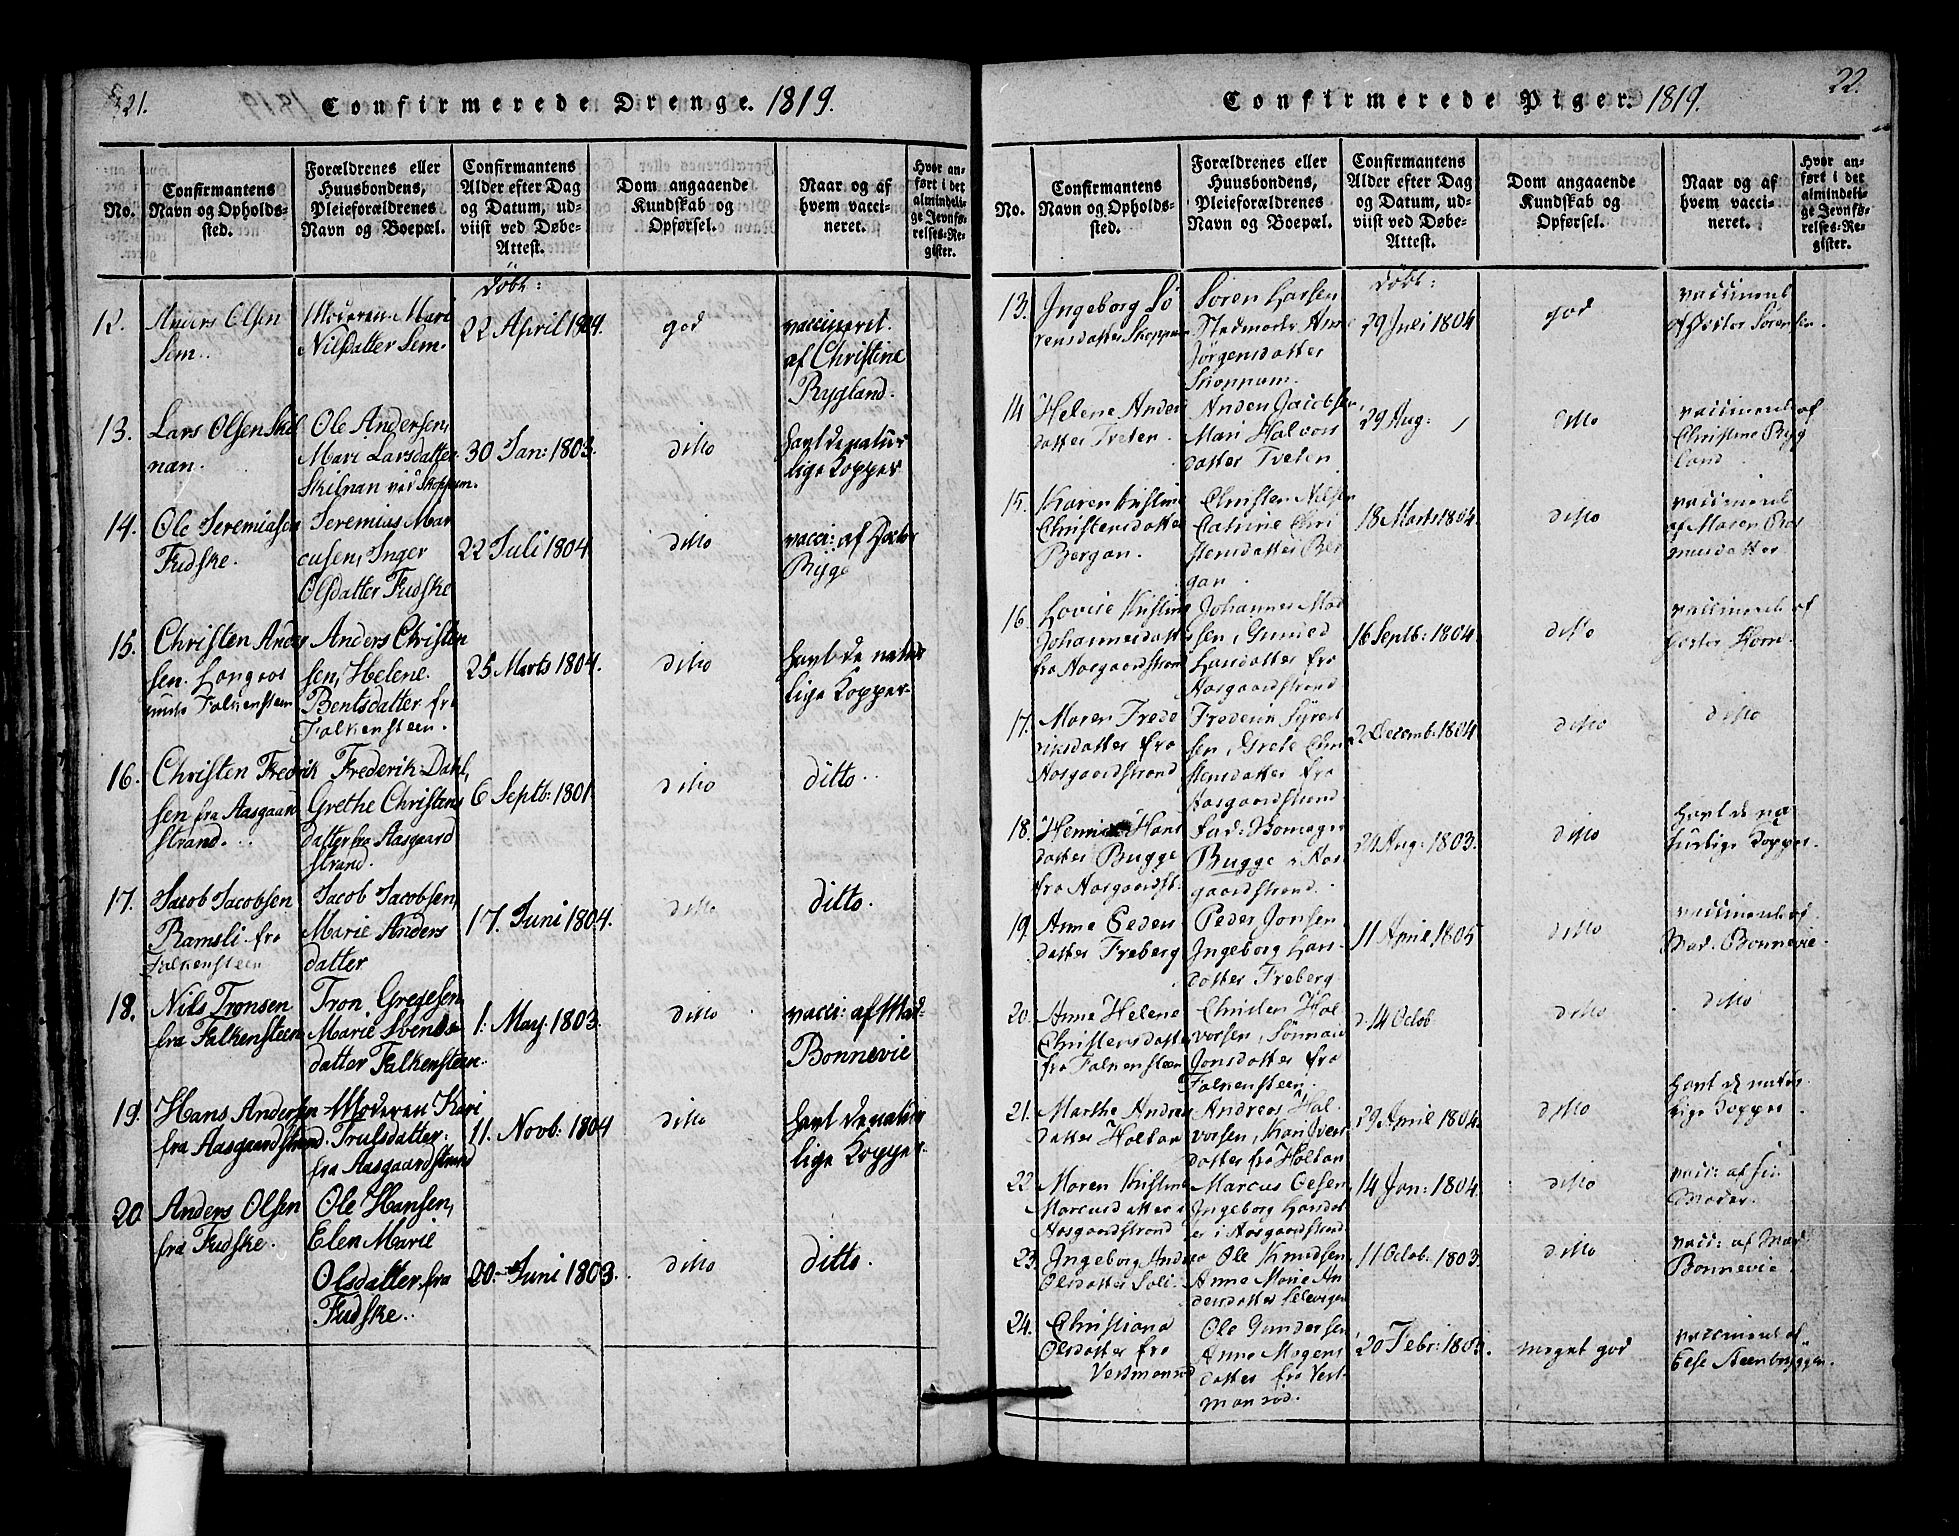 21.
Confirmerede Drenge. 1819.
No.
Confirmantens
Navn og Opholds-
sted.
Forældrenes eller
Huusbondens,
Pleieforældrenes
Navn og Boepæl.
Confirmantens
Alder efter Dag
og Datum, ud-
viist ved Døbe-
Attest.
Dom angaaende
Kundskab og
Opførsel.
Naar og af
hvem vacci-
neret.
Hvor an-
ført i det
almindeli-
ge Jevnfø-
relses-Re-
gister.
12.
Anders Olsen
Sem.
Moderen Mari
Nilsdatter Sem.
døbt:
22 April 1804.
god
vaccineret
af Christine
Rygland.
13.
Lars Olsen Skil
nan.
Ole Andersen,
Mari Larsdatter
Skilnan ved Skoppum.
30 Jan: 1803.
ditto
havt de natur
lige Kopper
14.
Ole Jeremiasen
Fudske.
Jeremias Mar
cusen, Inger
Olsdatter Fudske
22 Juli 1804.
ditto
vacci: af Doctor
Ryge
15.
Christen Ander
sen
Falkensteen
Anders Christen
sen, Helene
Bentsdatter fra
Falkensteen.
25 Marts 1804.
ditto
havt de natur
lige Kopper
16.
Christen Fredrik
sen fra Aasgaard
strand.
Frederik Dahl,
Grethe Christens
datter fra Aasgaard
strand.
6 Septb: 1801.
ditto
ditto.
17.
Jacob Jacobsen
Ramsli fra
Falkensteen
Jacob Jacobsen,
Marie Anders
datter
17. Juni 1804.
ditto
ditto.
18.
Nils Tronsen
fra Falkensteen
Tron Gregesen
Marie Svends
datter Falkensteen.
1. May 1803.
ditto
vacci: af Mad.
Bonnevie
19.
Hans Andersen
fra Aasgaardstrand.
Moderen Kari
Trulsdatter
fra Aasgaardstrand
11. Novb: 1804
ditto
havt de natur
lige Kopper.
20
Anders Olsen
fra Fudske.
Ole Hansen,
Elen Marie
Olsdatter fra
Fudske.
20. Juni 1803.
ditto
ditto.
22.
Confirmerede Piger. 1819.
No.
Confirmantens
Navn og Opholds-
sted.
Forældrenes eller
Huusbondens,
Pleieforældrenes
Navn og Boepæl.
Confirmantens
Alder efter Dag
og Datum, ud-
viist ved Døbe-
Attest.
Dom angaaende
Kundskab og
Opførsel.
Naar og af
hvem vacci-
neret.
Hvor an-
ført i det
almindeli-
ge Jevnfø-
relses-Re-
gister.
13.
Ingeborg Sö
rensdatter Skoppum
Sören Larsen
Stedmoder Anne
Jörgensdatter
Skoppum.
døbt:
29 Juli 1804
god
vaccineret
Sörensen.
14
Helene Anders
datter Tveten.
Anders Jacobsen,
Mari Halvors
datter Tveten
29 Aug:
ditto
vaccineret af
Christine Ryg
land.
15.
Karen Kristine
Christensdatter
Bergan.
Christen Nilsen
Catrine Chri
stensdatter Ber
gan.
18 Marts 1804.
ditto
vaccineret
af Maren Ras
musdatter
16.
Lovise Kristine
Johannesdatter
fra Aasgaardstrand
Johannes Mad
sen, Gunild
Larsdatter fra
Aasgaardstrand
16 Septb: 1804.
ditto
vaccineret af
Horn.
17.
Maren Frede
riksdatter fra
Aasgaardstrand
Frederik Syvert
sen, Grete Chri
stensdatter fra
Aasgaardstrand
2 Decemb: 1804
ditto
ditto
18.
Hans
datter Bugge
fra Aasgaardst.
Bugge
gaardstrand.
24 Aug: 1803.
ditto
havt de na
turlige Kopper.
19
Anne Peders
datter Freberg
Peder Jonsen
Ingeborg Lars
datter Freberg
11 April 1805
ditto
vaccineret af
Mad. Bonnevie.
20.
Anne Helene
Christensdatter
fra Falkensteen
Christen Hal
vorsen,
Jonsdatter fra
Falkensteen.
14 Octob
ditto
ditto
21.
Marthe Andreas
datter Holtan
Andreas Hal
vorsen, Kari Ivers
datter fra Holtan
29 April 1804.
ditto
havt de natur
lige Kopper.
22.
Maren Kristine
Marcusdatter i
Aasgaardstrand
Marcus Olsen
Ingeborg Hansdat
er i Aasgaardstrand
14 Jan: 1804.
ditto
vacc: af sin
Moder.
23.
Ingeborg Andrea
Olesdatter Soli.
Ole Knudsen
Anne Marie An
dersdatter
11 Octob. 1803.
ditto
vacc: af Mad.
Bonnevie.
24.
Christiana
Olsdatter fra
Ole Gundersen
Anne Mogens
datter fra Vest
manröd.
20 Febr:
meget god
vaccineret af